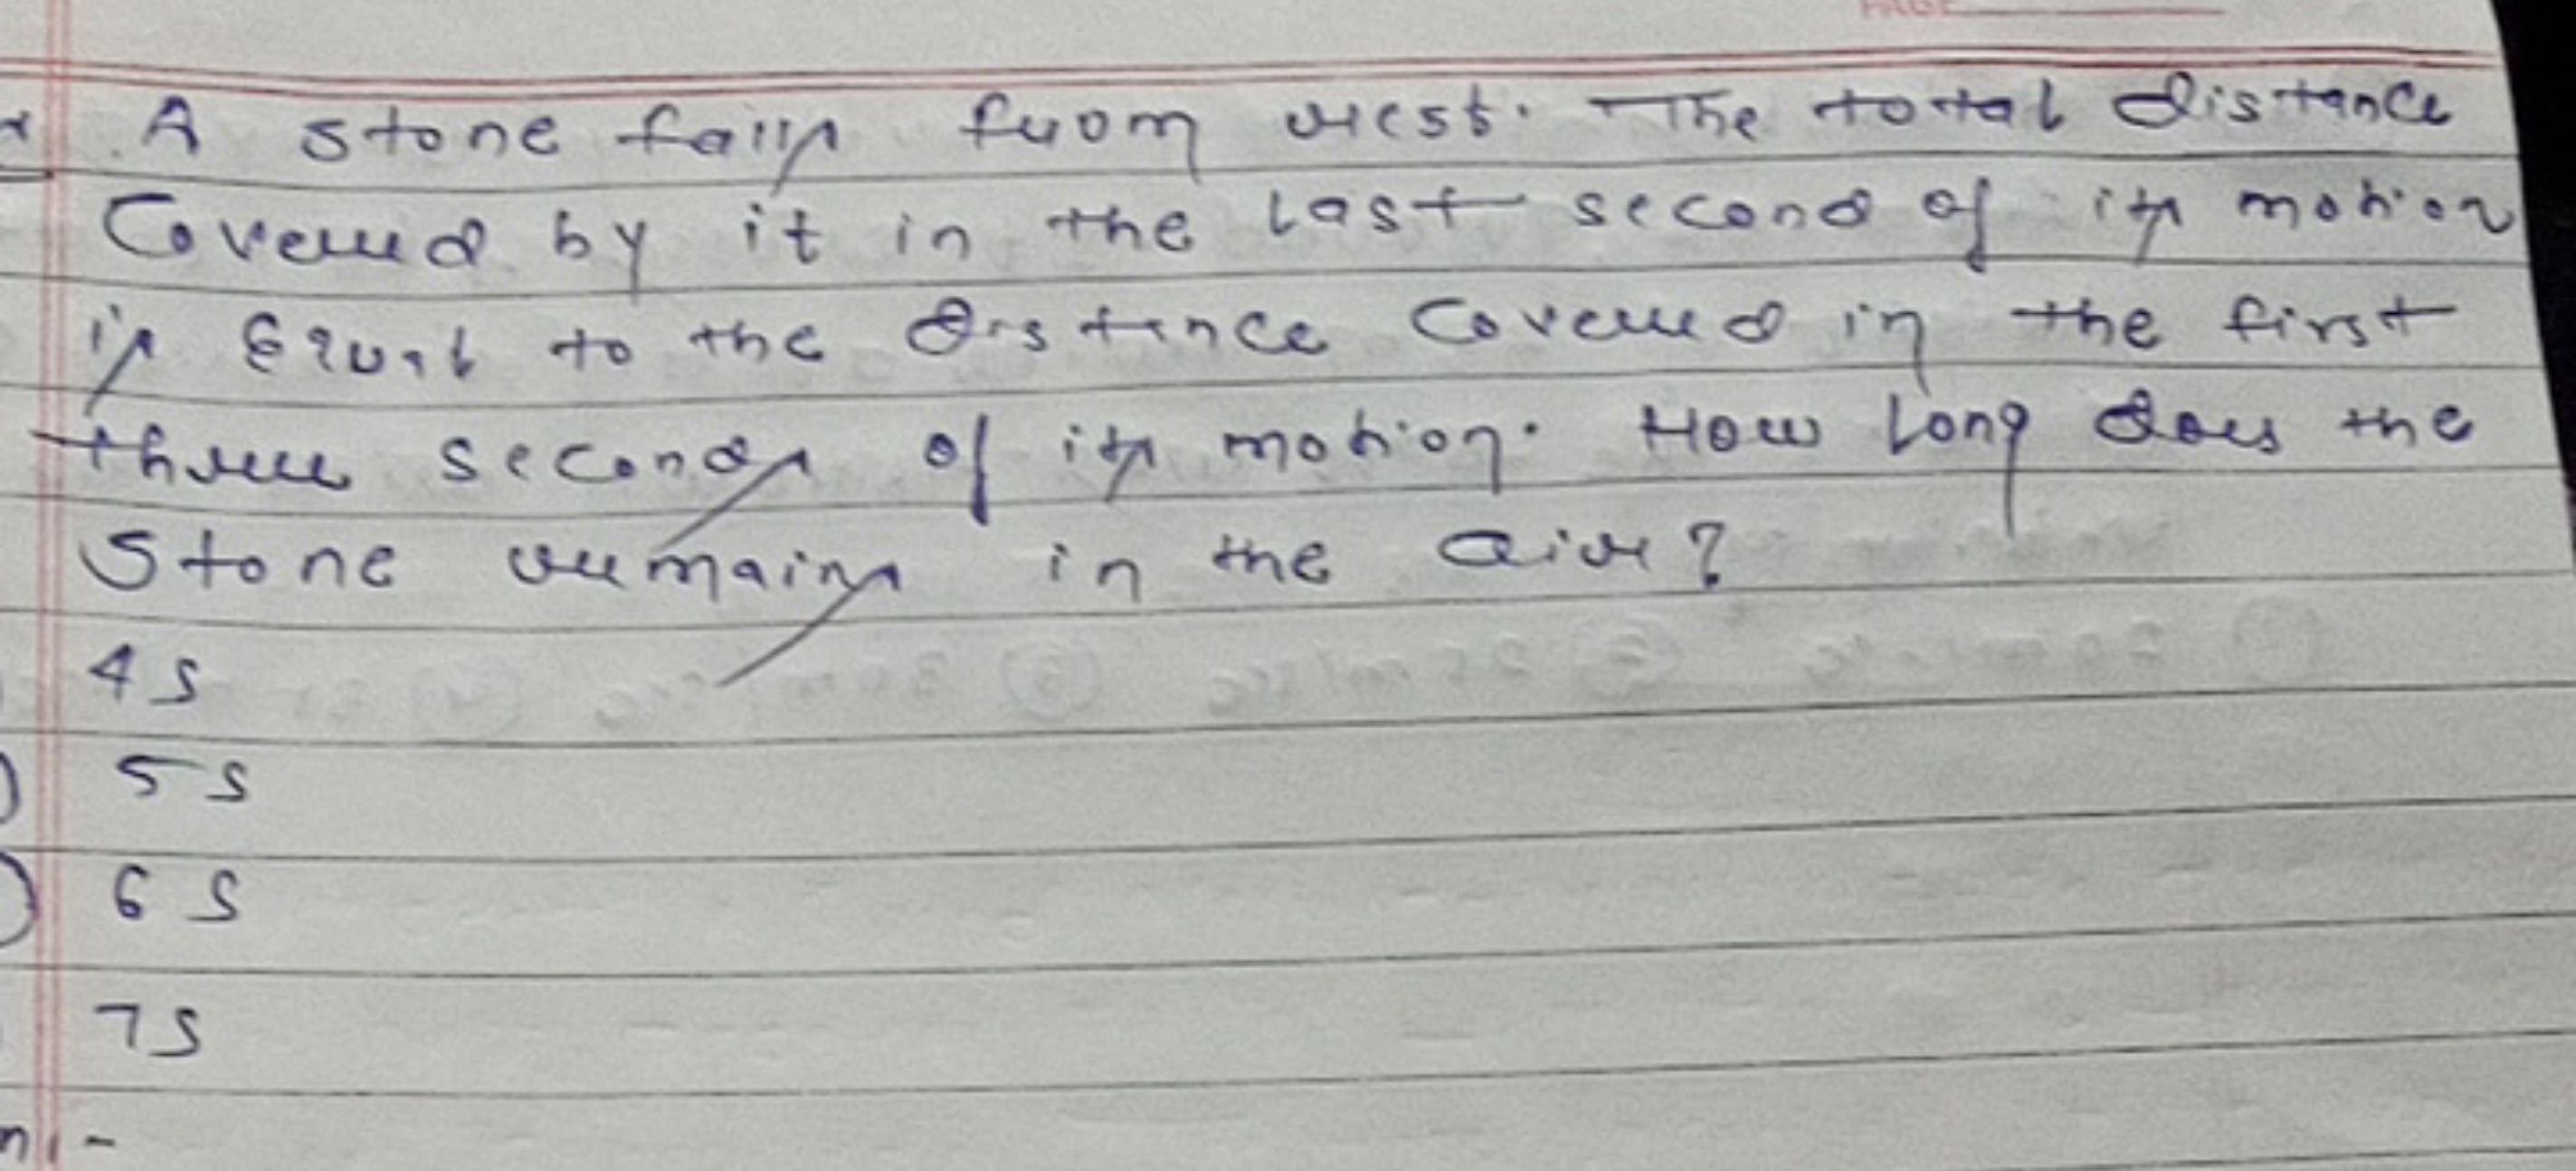 PAGE
A stone falls from rest. The total distance
Covered by it in the last second of its motion
is Equal to the distance Covered in the first
three seconds of its motion. How long does the
Stone remains in the air?
4 s
5 s
6 s
7 s